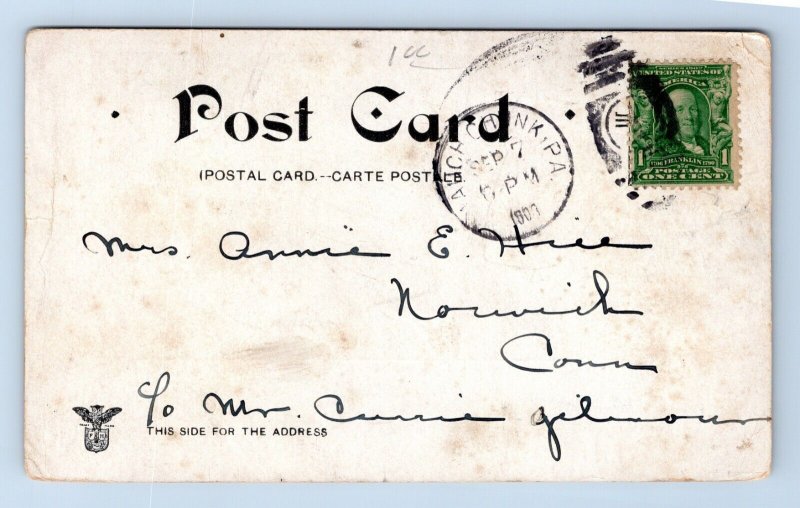 1oo
Post Card
(POSTAL CARD.--CARTE POSTALE
MAUCH CHUNK, PA.
SEP 7
PM
UNITED STATES OF
AMERICA
1706 FRANKLIN 1790
1 POSTAGE 1
ONE CENT
Mrs. Annie E. Hill
Norwich
Conn
℅ Mr. Currie Gilmour
THIS SIDE FOR THE ADDRESS